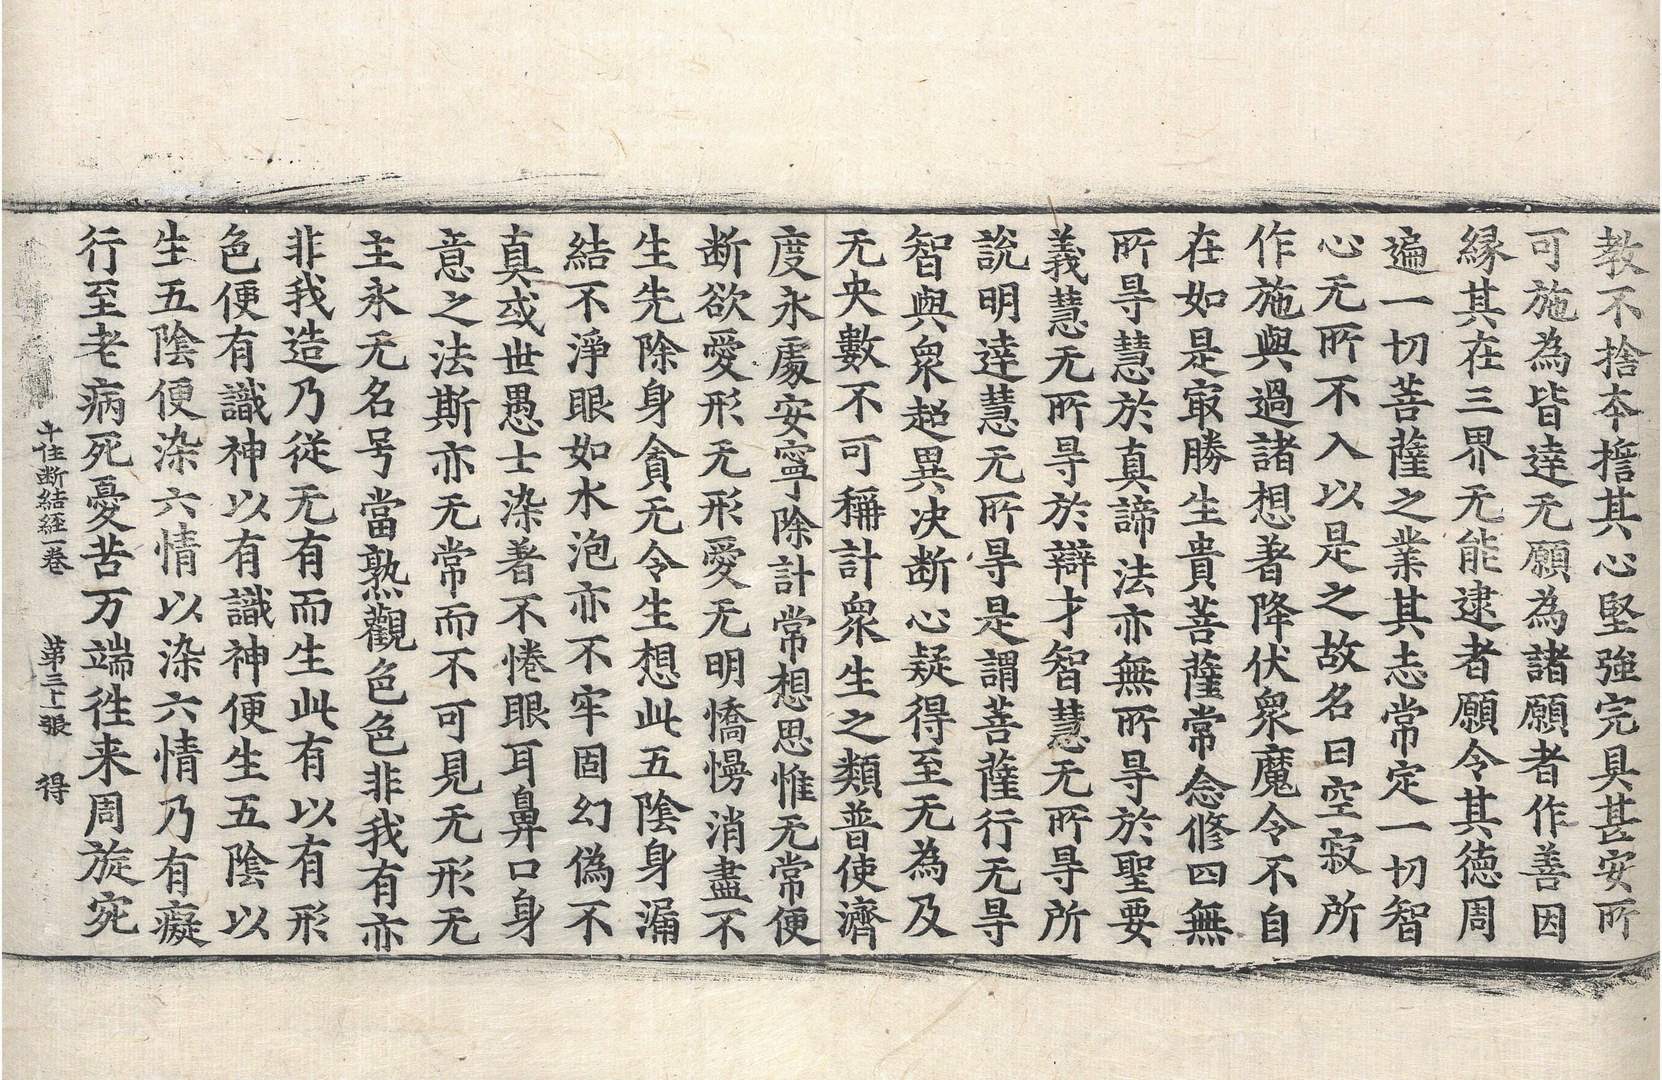 教不捨本擔其心堅強完具甚安所
可施為皆達无願為諸願者作善因
縁其在三界无能逮者願令其德周
遍一切菩薩之業其志常定一切智
心无所不入以是之故名曰空寂所
作施與過諸想著降伏衆魔令不自
在如是㝡勝生貴菩薩常念修四無
所㝵慧於真諦法亦無所㝵於聖要
義慧无所㝵於辯才智慧无所㝵所
說明達慧无所㝵是謂菩薩行无㝵
智與衆超異决断心疑得至无為及
无央數不可稱計衆生之類普使濟
度永處安寜除計常想思惟无常便
断欲愛形无形愛无明憍慢消盡不
生先除身貪无令生想此五陰身漏
結不淨眼如水泡亦不牢固幻偽不
真或世愚士染著不惓眼耳鼻口身
意之法斯亦无常而不可見无形无
主永无名号當熟觀色色非我有亦
非我造乃從无有而生此有以有形
色便有識神以有識神便生五陰以
生五陰便染六情以染六情乃有癡
行至老病死憂苦万端徃来周旋宛
十住断結經一卷 第三十張 得